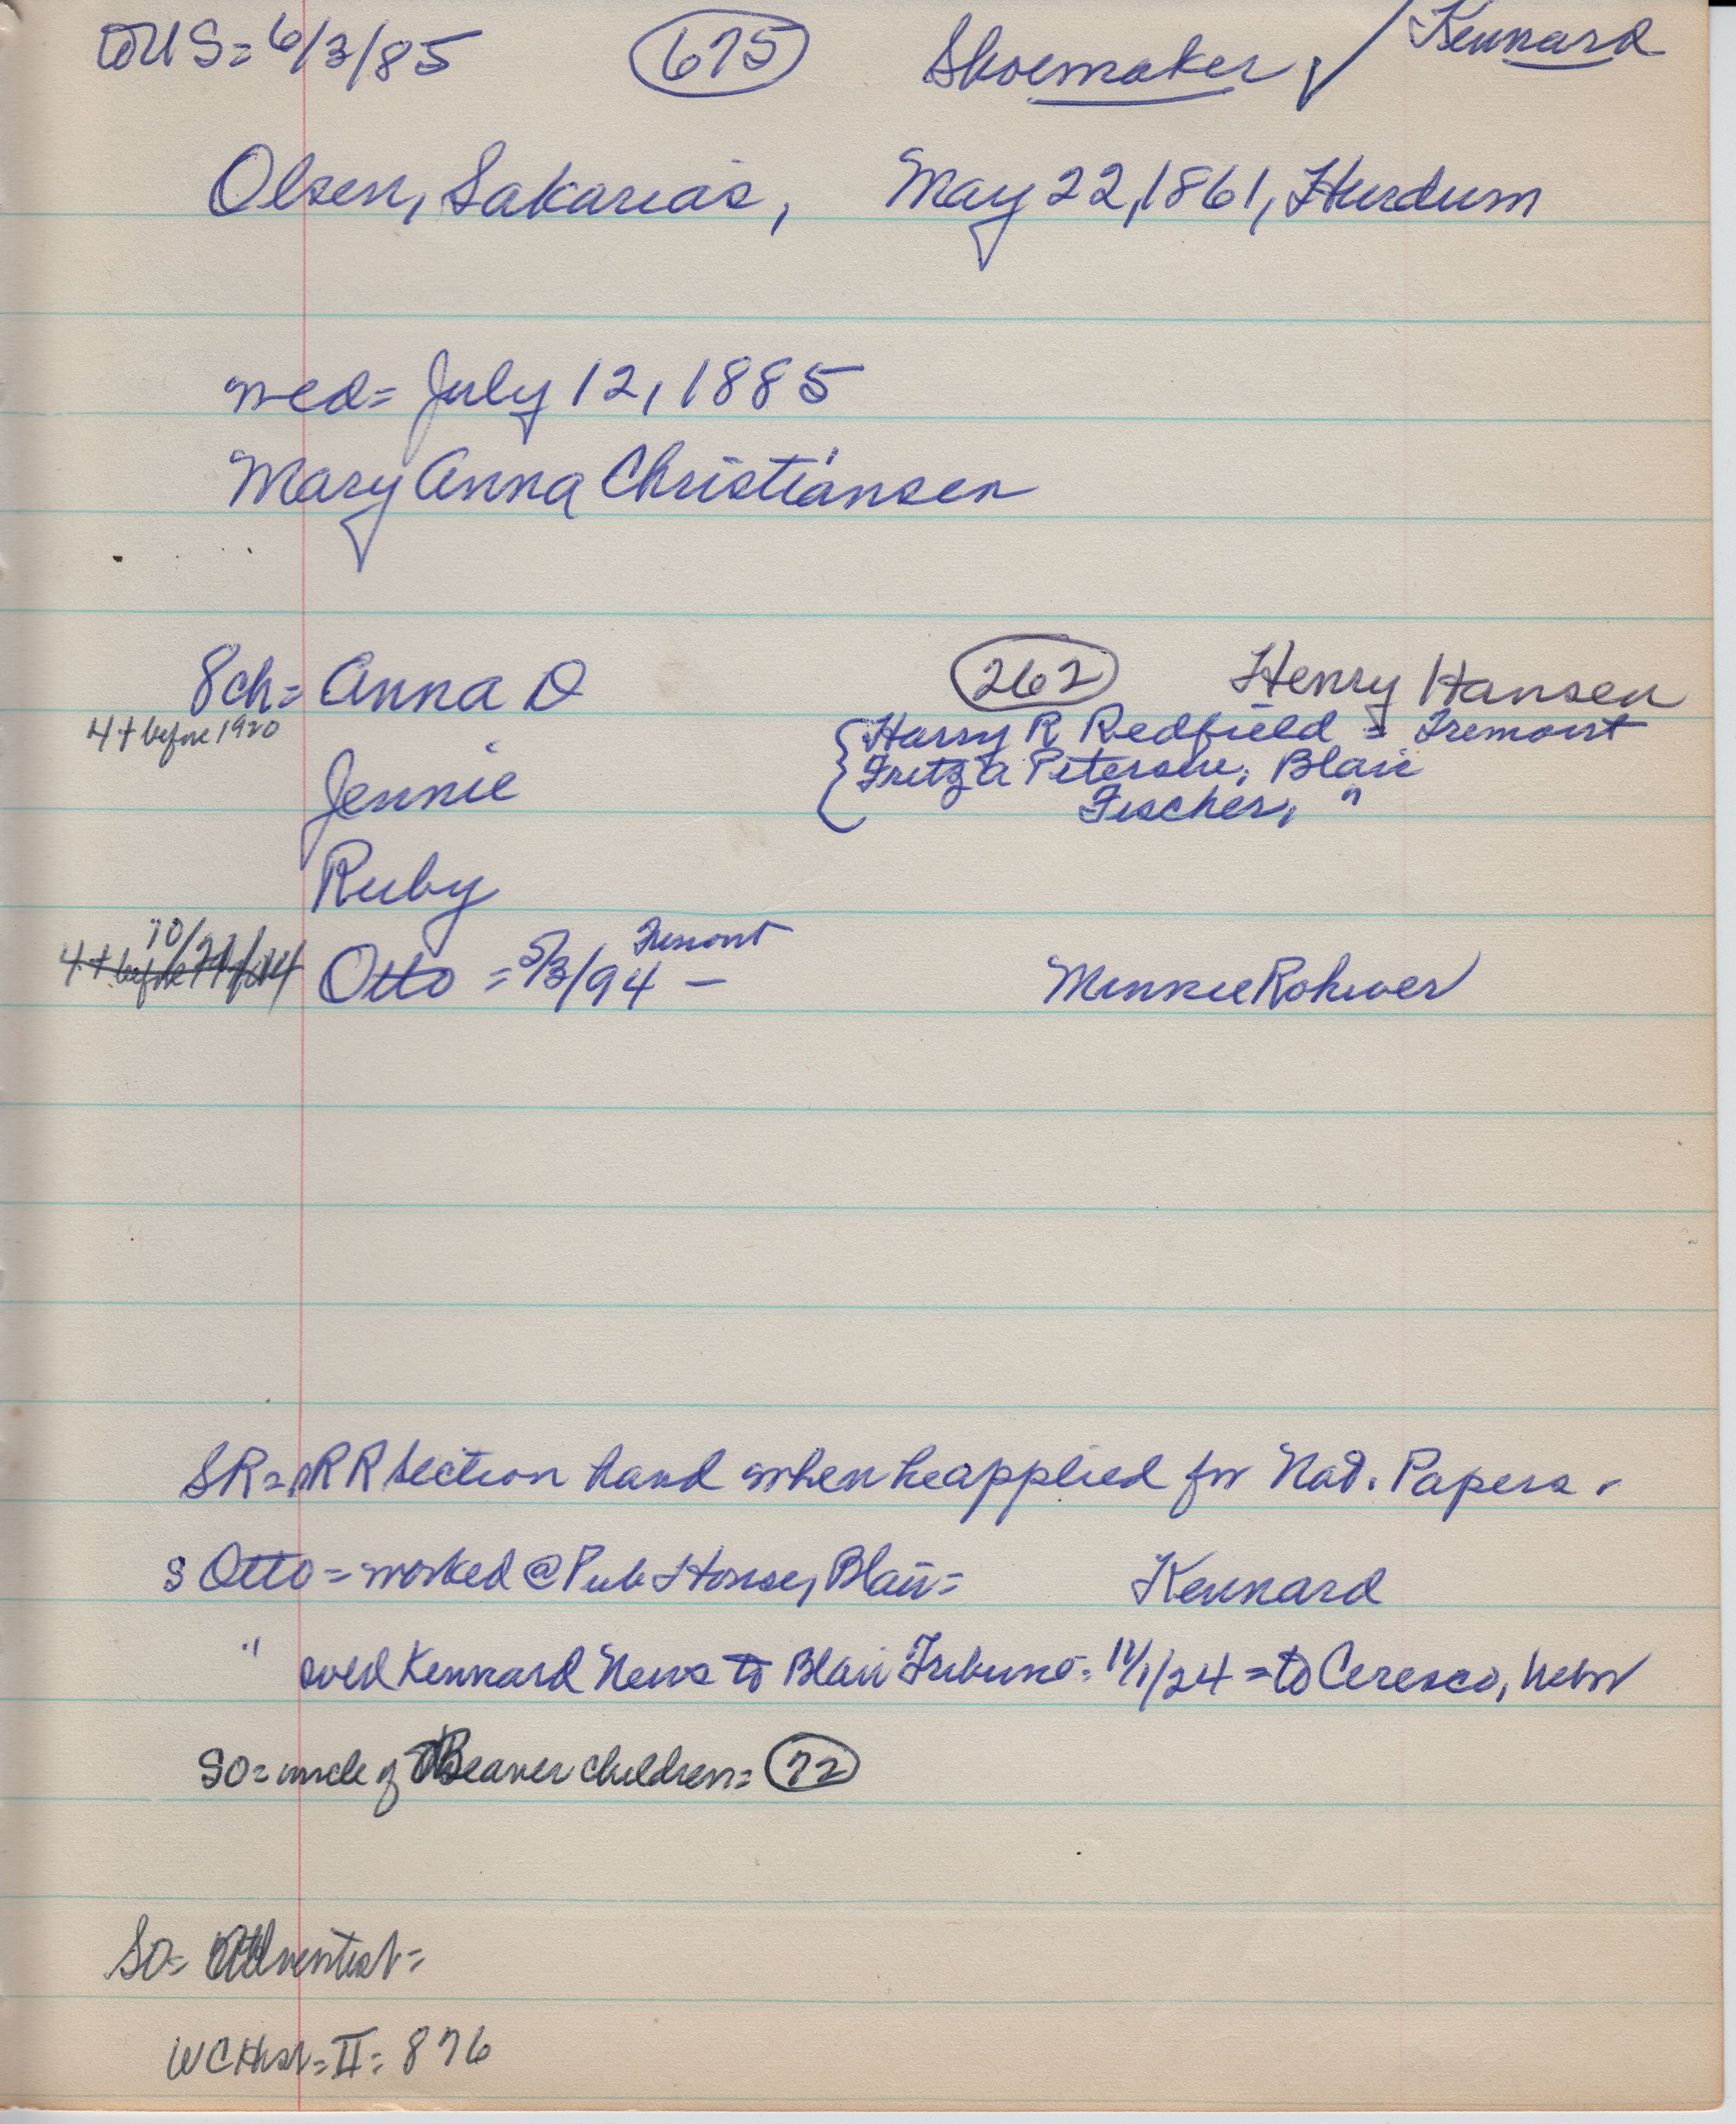 to US = 6/3/85 (675) Shoemaker, ✓ Kennard
Olsen, Sakarias, May 22, 1861, Hurdum
wed = July 12, 1885
Mary Anna Christiansen
8ch = Anna O (262) Henry Hansen
4 + before 1920
Harry R Redfield = Fremont
Jennie Fritz A Petersen, Blair
Fischer, "
Ruby
Fremont
Otto = 5/3/94 – Minnie Rohwer
RR Section hand when he applied for Nat. Papers.
s Otto = worked @ Pub House, Blair = Kennard
" sold Kennard News to Blair Tribune = 11/1/24 = to Ceresco, Nebr
SO = uncle of Beaver children = (72)
SO = Adventist =
WC Hist = II = 876